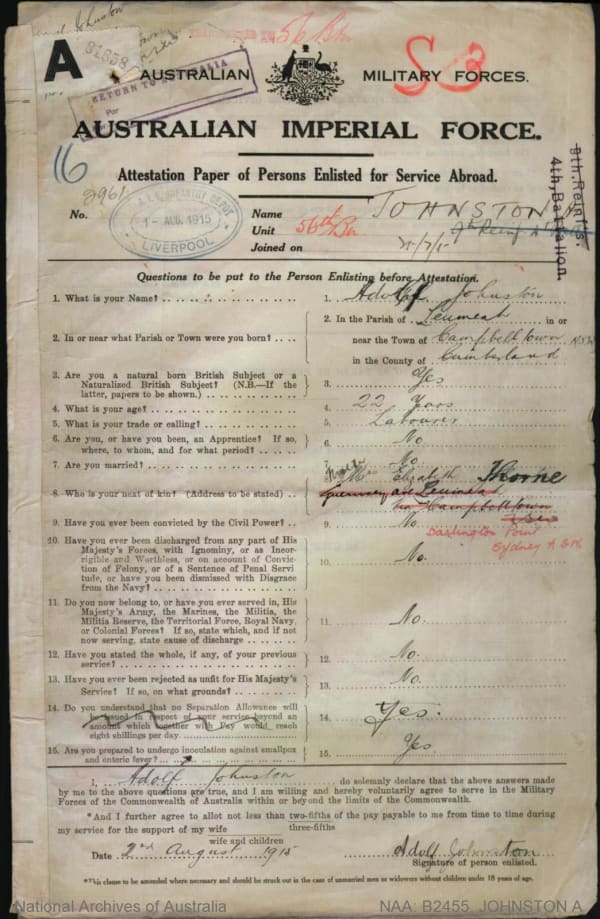 A
31658
RETURN TO AUSTRALIA
56 Bn
AUSTRALIAN MILITARY FORCES.
AUSTRALIAN IMPERIAL FORCE.
16
Attestation Paper of Persons Enlisted for Service Abroad.
2961
No.
INFANTRY DEPOT
1 - AUG. 1915
LIVERPOOL
Name JOHNSTON A
Unit 56th Bn
Joined on
8th Reinfts.
4th Battalion.
Questions to be put to the Person Enlisting before Attestation.
1. What is your Name? 1. Adolf Johnston
2. In or near what Parish or Town were you born? 2. In the Parish of Leumeah in or
near the Town of Campbelltown NSW
in the County of Cumberland
3. Are you a natural born British Subject or a
Naturalized British Subject? (N.B.—If the
latter, papers to be shown.) 3. Yes
4. What is your age? 4. 22 Years
5. What is your trade or calling? 5. Labourer
6. Are you, or have you been, an Apprentice? If so,
where, to whom, and for what period? 6. No
7. Are you married? 7. No
8. Who is your next of kin? (Address to be stated) 8. Mrs Elizabeth Thorne
Leumeah
Campbelltown
Darlington Point
Sydney
9. Have you ever been convicted by the Civil Power? 9. No.
10. Have you ever been discharged from any part of His
Majesty's Forces, with Ignominy, or as Incor-
rigible and Worthless, or on account of Convic-
tion of Felony, or of a Sentence of Penal Servi-
tude, or have you been dismissed with Disgrace
from the Navy? 10. No.
11. Do you now belong to, or have you ever served in, His
Majesty's Army, the Marines, the Militia, the
Militia Reserve, the Territorial Force, Royal Navy,
or Colonial Forces? If so, state which, and if not
now serving, state cause of discharge 11. No.
12. Have you stated the whole, if any, of your previous
service? 12. No.
13. Have you ever been rejected as unfit for His Majesty's
Service? If so, on what grounds? 13. No.
14. Do you understand that no Separation Allowance will
be issued in respect of your service beyond an
amount which together with Pay would reach
eight shillings per day. 14. Yes.
15. Are you prepared to undergo inoculation against smallpox
and enteric fever? 15. Yes
I, Adolf Johnston do solemnly declare that the above answers made
by me to the above questions are true, and I am willing and hereby voluntarily agree to serve in the Military
Forces of the Commonwealth of Australia within or beyond the limits of the Commonwealth.
*And I further agree to allot not less than two-fifths of the pay payable to me from time to time during
three-fifths
my service for the support of my wife
wife and children
Date 2nd August 1915 Adolf Johnston
Signature of person enlisted.
*This clause to be amended where necessary and should be struck out in the case of unmarried men or widowers without children under 18 years of age.
National Archives of Australia NAA: B2455, JOHNSTON A